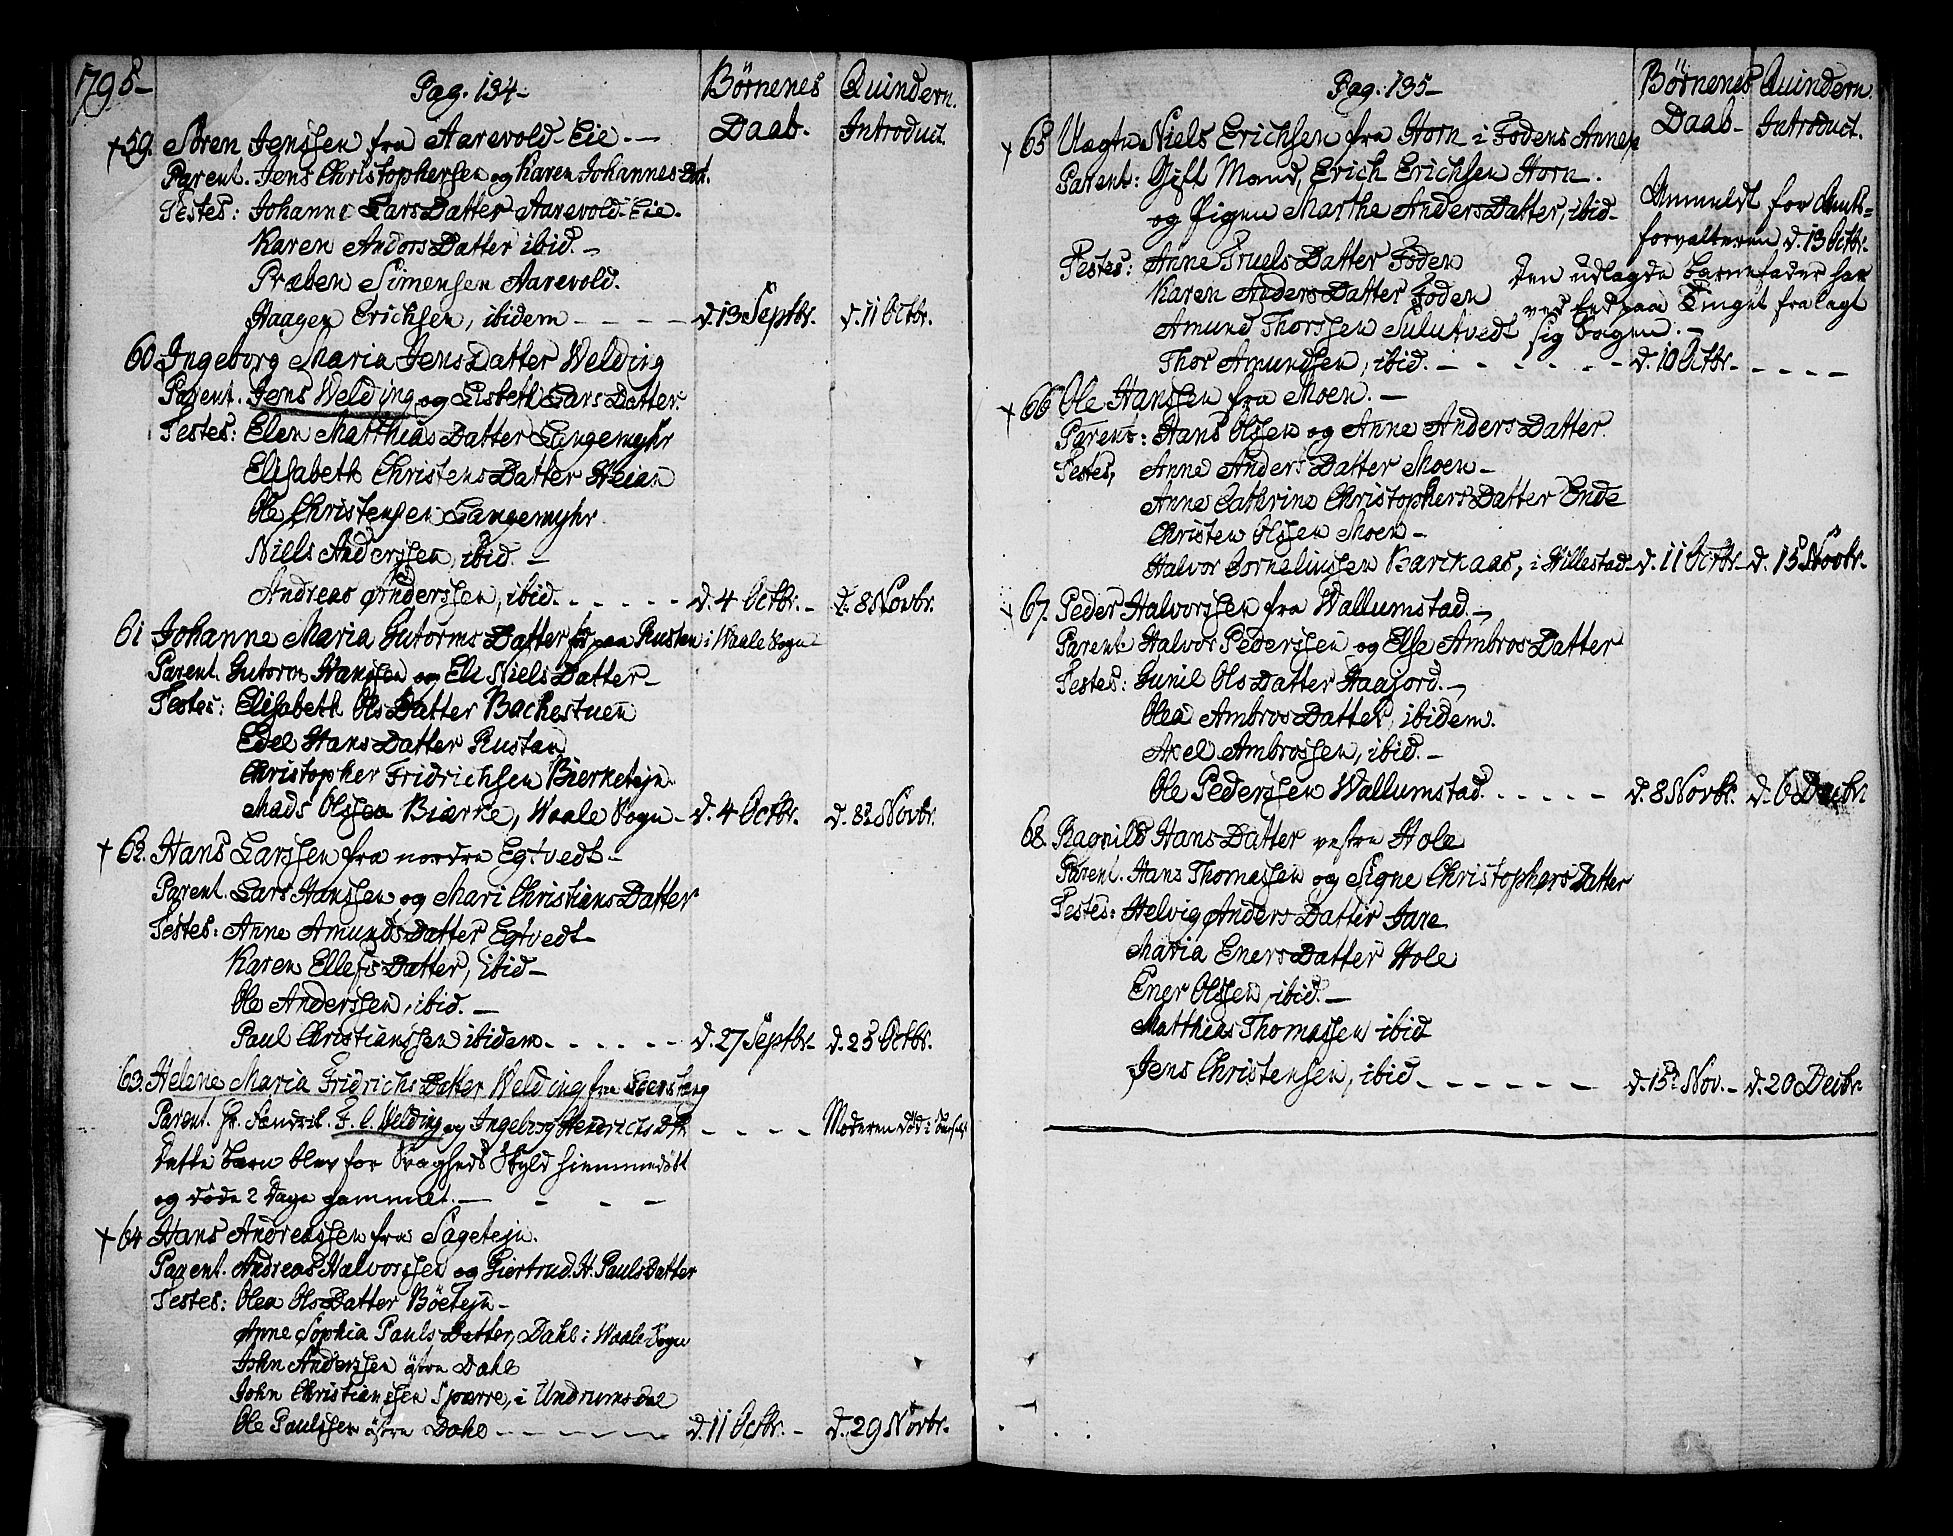 1795-
Pag. 134-
Börnenes Daab.
Quindern. Introduct.
+59. Sören Jenssen fra Aarevold-Eie.-
Parent. Jens Christophersen og Karen Johannes Dat.
Testes: Johanne Lars Datter Aarevold-Eie.
Karen Anders Datter ibid.-
Præben Simensen Aarevold.
Haagen Erichsen, ibidem - - - - d. 13 Septbr. d. 11 Octbr.
60. Ingeborg Maria Jens Datter Welding
Parent. Jens Welding og Lisbeth Lars Datter.
Testes: Elen Matthias Datter Langemyhr
Elisabeth Christens Datter Weian
Ole Christensen Langemyhr.
Niels Anderssen, ibid.-
Andreas Anderssen, ibid. - - - - - d. 4 Octbr.- d. 8 Novbr.
61 Johanne Maria Gutorms Datter paa Rustan i Waale Sogn
Parent. Gutorm Hanssen og Eli Niels Datter-
Testes: Elisabeth Ols Datter Bachestuen
Edel Hans Datter Rustan
Christopher Fridrichsen Bierketejn
Mads Olssen Biærke, Waale Sogn- d. 4 Octbr. d. 8 Novbr.
+ 62. Hans Larssen fra nordre Egtvedt-
Parent. Lars Hanssen og Mari Christians Datter
Testes: Anne Amunds Datter Egtvedt-
Karen Ellefs Datter, ibid-
Ole Anderssen, ibid.-
Paul Christianssen ibidem - - - - - d. 27 Septbr- d. 25 Octbr.
63. Helene Maria Fridrichs Datter Welding fra
Parent. Hr. F. C. Welding og Ingeborg Henrichs Dtr. - - - - Moderen död i
Dette Barn blev for Svagheds Skyld hiemmedöbt
og döde 2 Dage gammel.- - - -
+ 64 Hans Andreassen fra Sagetejn.
Parent. Andreas Halvorssen og Giertrud. H. Pauls Datter
Testes: Olea Ols Datter Böetejn-
Anne Sophia Pauls Datter, Dahl i Waale Sogn
John Anderssen östre Dahl
John Christianssen Spærre, i Undrumsdal
Ole Paulssen östre Dahl - - - - - d. 11 Octbr.- d. 29 Novbr.
Pag. 135-
Börnenes Daab-
Quindern. Introduct.
+ 65 Uægte Niels Erichsen fra Horn i Fodens Annex
Parent: Gift Mand, Erich Erichsen Horn.
og Pigen Marthe Anders Datter, ibid-
Anmeldt for Amts=
forvalteren d. 13 Octbr.
Testes: Anne Truels Datter Foden
Den udlagde Barnefader har
Karen Anders Datter Foden
ved Eed paa Tinget fralagt
Amund Thorssen Sulutvedt
sig Sagen.-
Thor Amundsen, ibid. - - - - - - d. 10 Octbr- - - - -
+ 66 Ole Hanssen fra Moen.-
Parent: Hans Olssen og Anne Anders Datter.
Testes, Anne Anders Datter Moen-
Anne Cathrine Christophers Datter Ende
Christen Olssen Moen-
Halvor Cornelinssen Barkaas, i Hillestad- d. 11 Octbr- d. 15 Novbr.
67. Peder Halvorssen fra Wallumstad.-
Parent. Halvor Pederssen og Else Ambros Datter
Testes: Gunil Ols Datter Haajord.-
Olea Ambros Datter, ibidem.
Axel Ambrossen, ibid.-
Ole Pederssen Wallumstad - - - - - d. 8 Novbr. d. 6 Decbr.
68. Ragnild Hans Datter vestre Hole
Parent. Hans Thomassen og Signe Christophers Datter
Testes: Helvig Anders Datter Jare
Maria Eners Datter Hole
Ener Olssen, ibid.-
Matthias Thomassen ibid
Jens Christensen, ibid - - - - - - d. 15 Nov.- d. 20 Decbr.